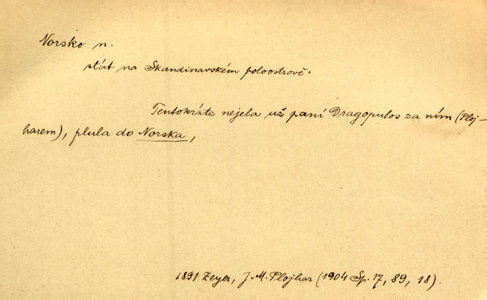 Norsko n.
stát na Skandinavském poloostrově.
Tentokráte nejela už paní Dragopulos za ním (Ploj-
harem), plula do Norska,
1891 Zeyer, J. M. Plojhar (1904 Sp. 17, 89, 18).